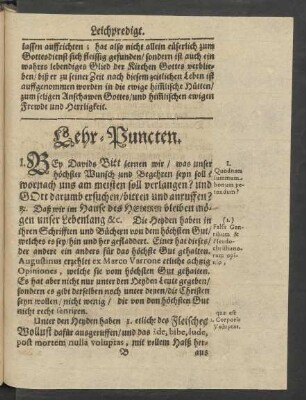 Leichpredigt.
lassen auffrichten: hat also nicht allein eüserlich zum
Gottesdienst sich fleissig gefunden/ sondern ist auch ein
wahres lebendiges Glied der Kirchen Gottes verblie-
ben/ biß er zu seiner Zeit nach diesem zeitlichen Leben ist
auffgenommen worden in die ewige himlische Hütten/
zum seligen Anschawen Gottes/ und himlischen ewigen
Frewde und Herrligkeit.
Lehr-Puncten.
1. Bey Davids Bitt lernen wir/ was unser
höchster Wunsch und Begehren seyn soll/
wornach uns am meisten soll verlangen? und
GOtt darumb ersuchen/ bitten und anruffen?
Daß wir im Hause des HERREN bleiben mö-
gen unser Lebenlang &c. Die Heyden haben in
ihren Schrifften und Büchern von dem höchsten Gut/
welches es sey/ hin und her gefladdert. Einer hat dieses/
der andere ein anders für das höchste Gut gehalten.
Augustinus erzehlet ex Marco Varrone etliche achtzig
Opiniones, welche sie vom höchsten Gut gehalten.
Es hat aber nicht nur unter den Heyden Leute gegeben/
sondern es gibt derselben noch unter denen/ die Christen
seyn wollen/ nicht wenig/ die von dem höchsten Gut
nicht recht
Unter den Heyden haben 1. etliche des Fleisches
Wollust dafür außgeruffen/ und das: Ede, bibe, lude,
post mortem nulla voluptas, mit vollem Halß her-
B aus
1.
Quodnam
summum
bonum pe-
tendum?
(1.)
Falsa Gen-
tilium &
Pseudo-
christiano-
rum opi-
nio,
quæ est
1. Corporis
Voluptas.